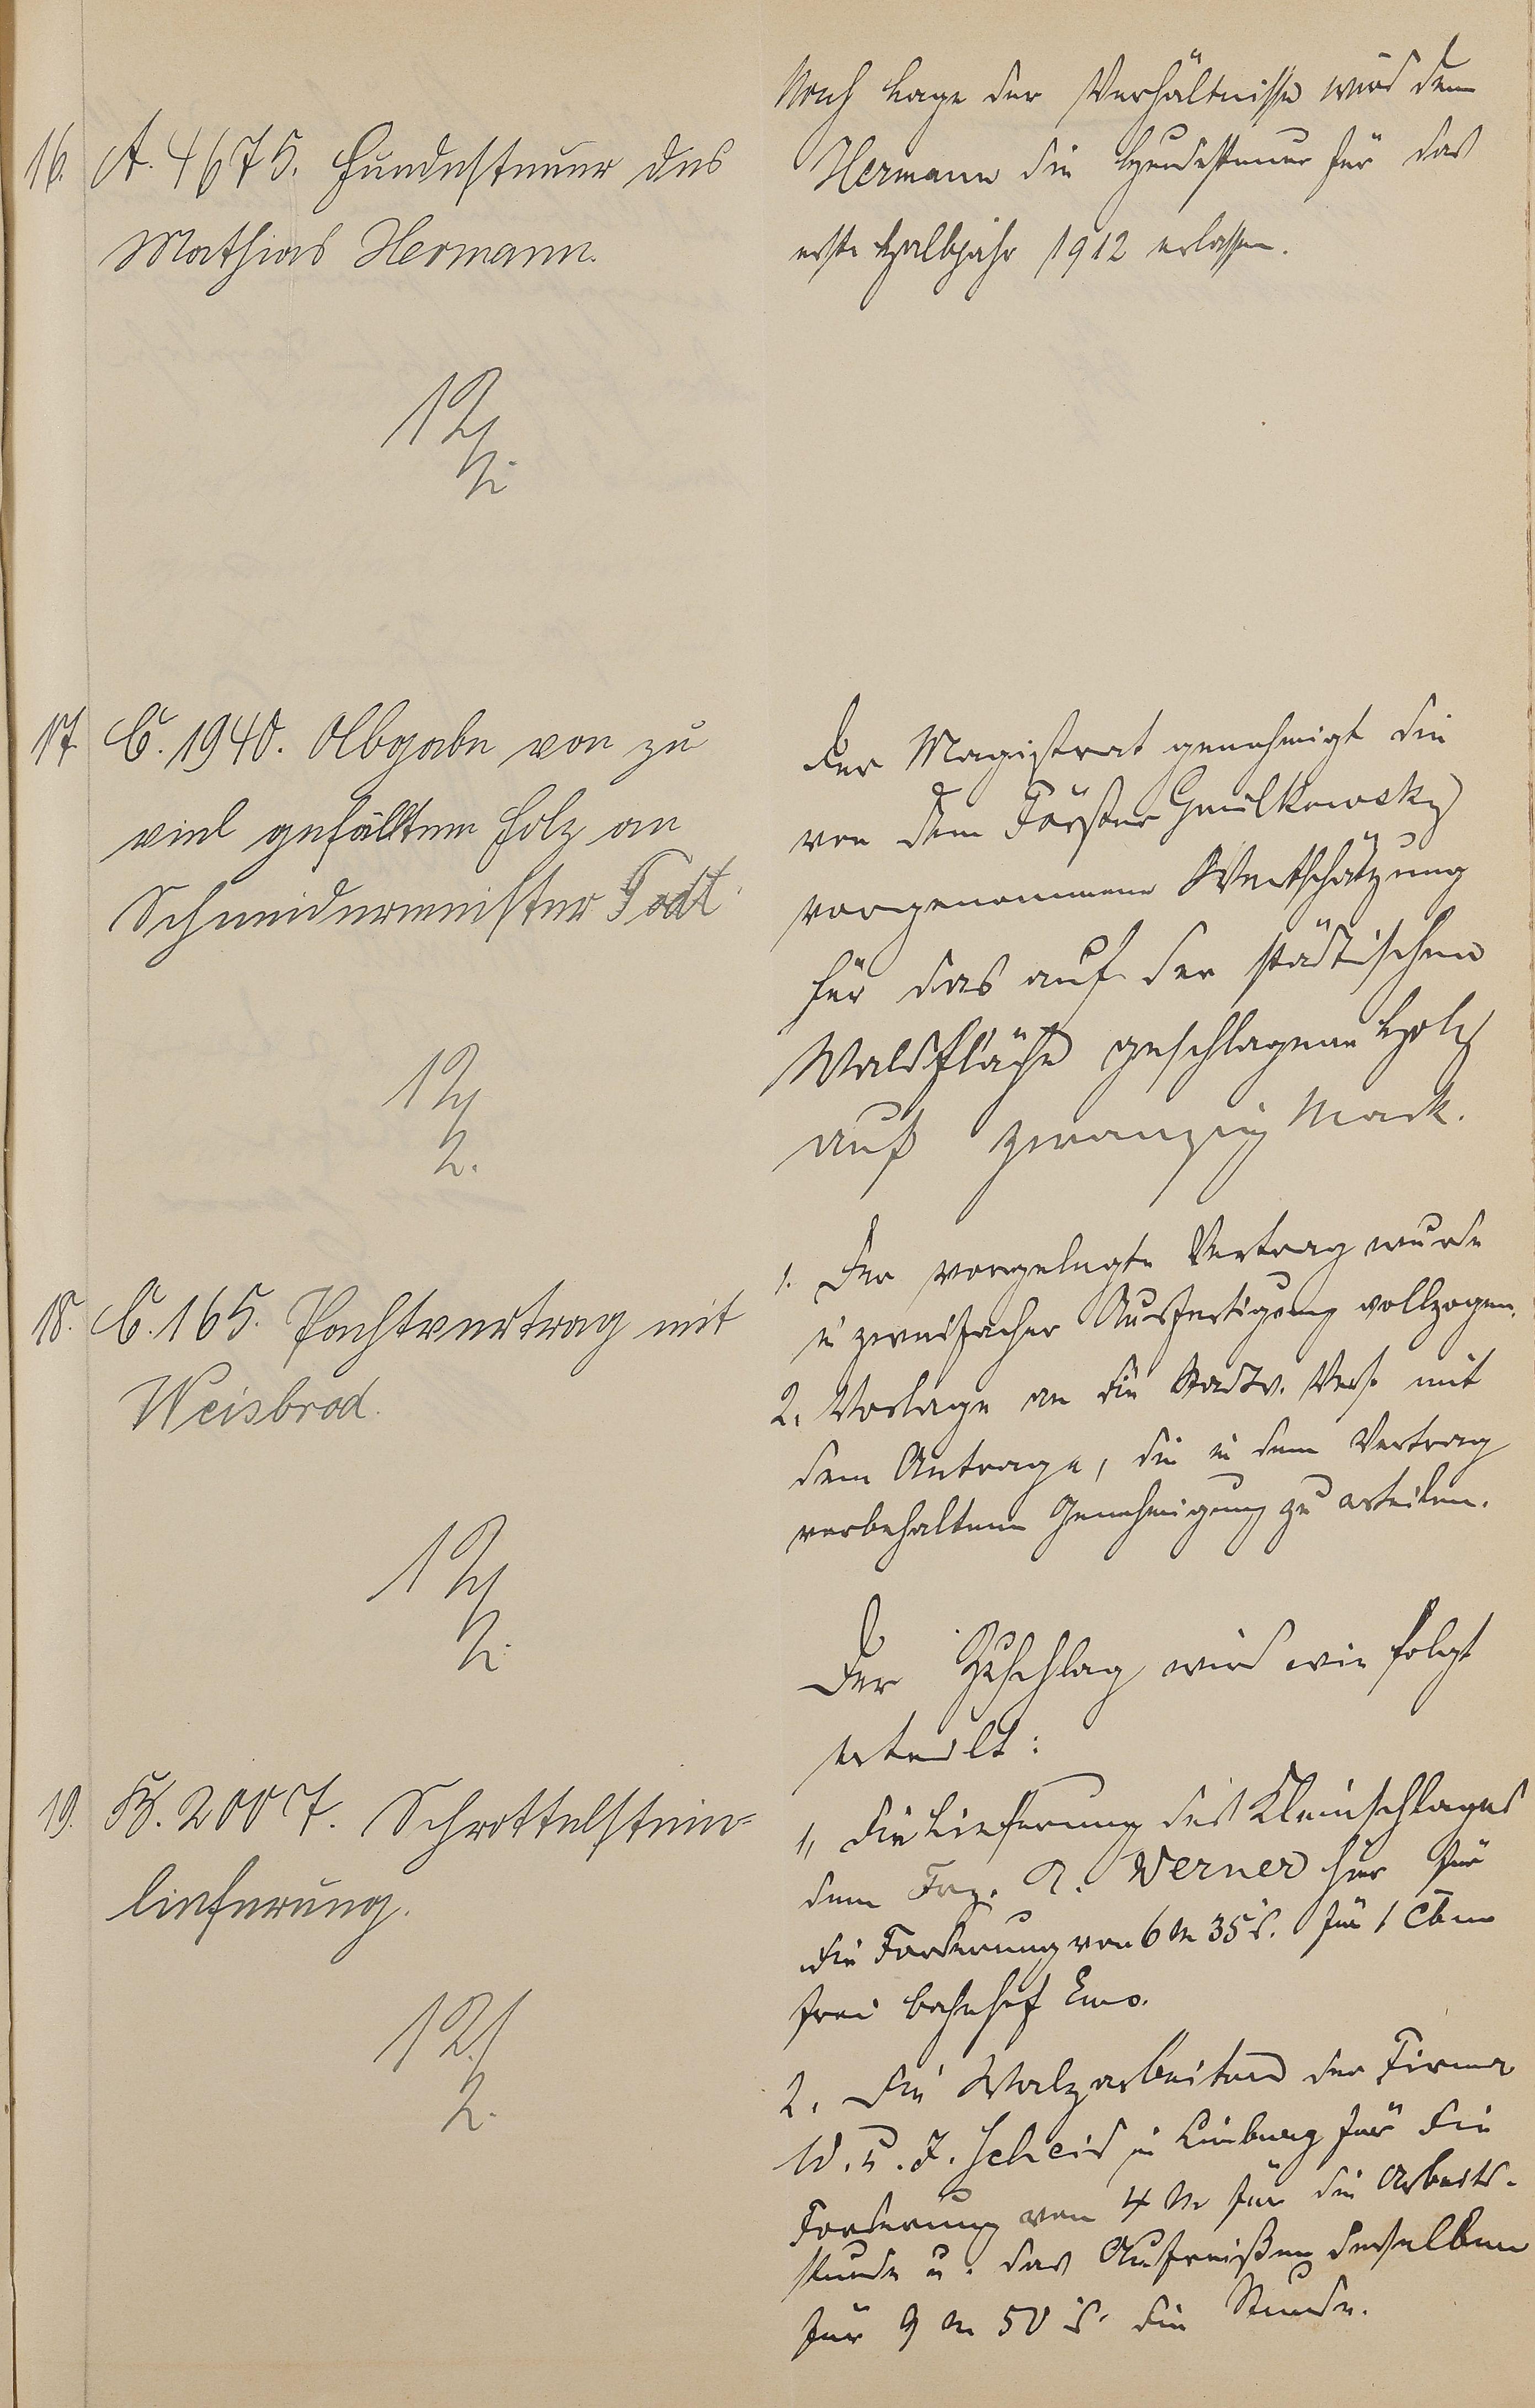 16. A. 4675. Hundesteuer des
Mathias Hermann.
12/2.
Nach Lage der Verhältnisse wird dem
Hermann die Hundesteuer für das
erste Halbjahr 1912 erlassen.
17. C. 1940. Abgabe von zu
viel gefälltem Holz an
Schneidermeister Todt
12/2.
Der Magistrat genehmigt die
von dem Förster
vorgenommene Wertschätzung
für das auf der städtischen
Waldfläche geschlagene Holz
auf zwanzig Mark.
18. C. 165. Pachtvertrag mit
Weisbrod.
12/2.
1. Der vorgelegte Vertrag wurde
in zweifacher Ausfertigung vollzogen.
2. Vorlage an die Stadtv. Vers. mit
dem Antrage, die in dem Vertrag
vorbehaltene Genehmigung zu erteilen.
19. B. 2007. Schrottelstein-
lieferung.
12/2.
Der Zuschlag wird wie folgt
erteilt:
1, Die Lieferung des Kleinschlages
dem A. Werner hier für
die Forderung von 6 M 35 ₰. für 1 cbm
frei Bahnhof Ems.
2. Die Walzarbeiten der Firma
W. u. J. Scheid in Limburg für die
Forderung von 4 M für die Arbeits-
stunde u. das Aufreißen derselben
für 9 M 50 ₰. die Stunde.